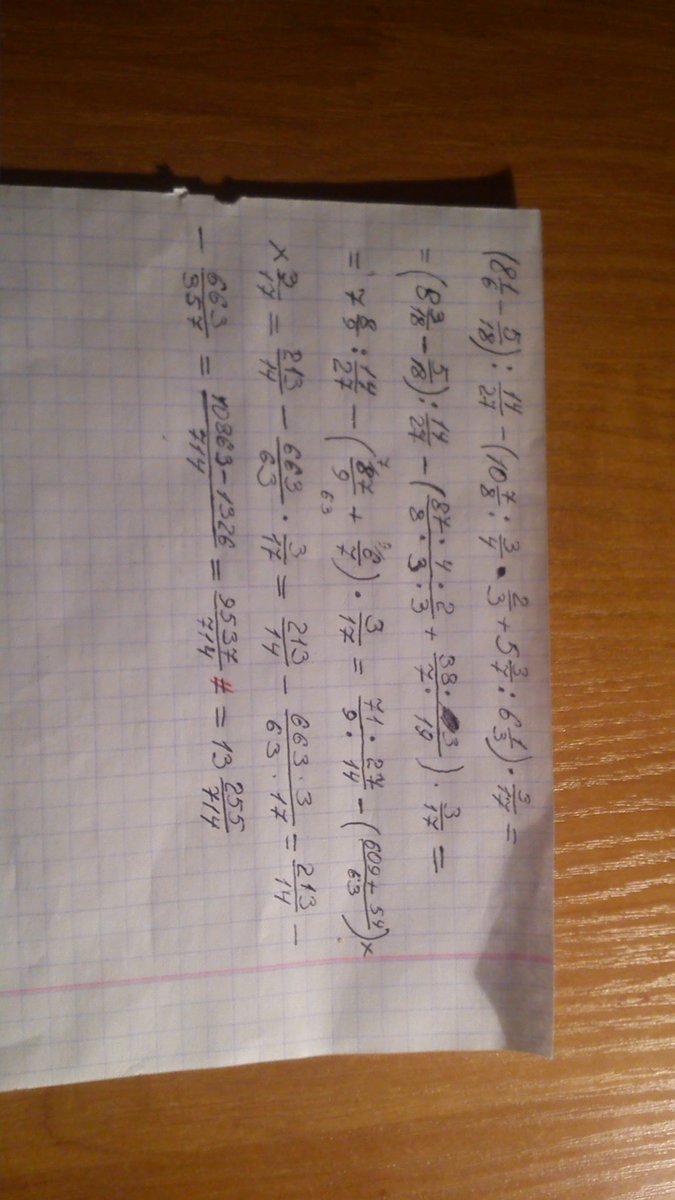 (8 1/6 − 5/18) : 14/27 − (10 7/8 : 3/4 · 2/3 + 5 3/7 : 6 1/3) · 3/17 =
= (8 3/18 − 5/18) : 14/27 − (87 · 4 · 2/8 · 3 · 3 + 38 · 3/7 · 19) · 3/17 =
= 7 8/9 : 14/27 − (87/9 + 6/7) · 3/17 = 71 · 27/9 · 14 − (609 + 54/63) ×
× 3/17 = 213/14 − 663/63 · 3/17 = 213/14 − 663 · 3/63 · 17 = 213/14 −
− 663/357 = 10863 − 1326/714 = 9537/714 = 13 255/714